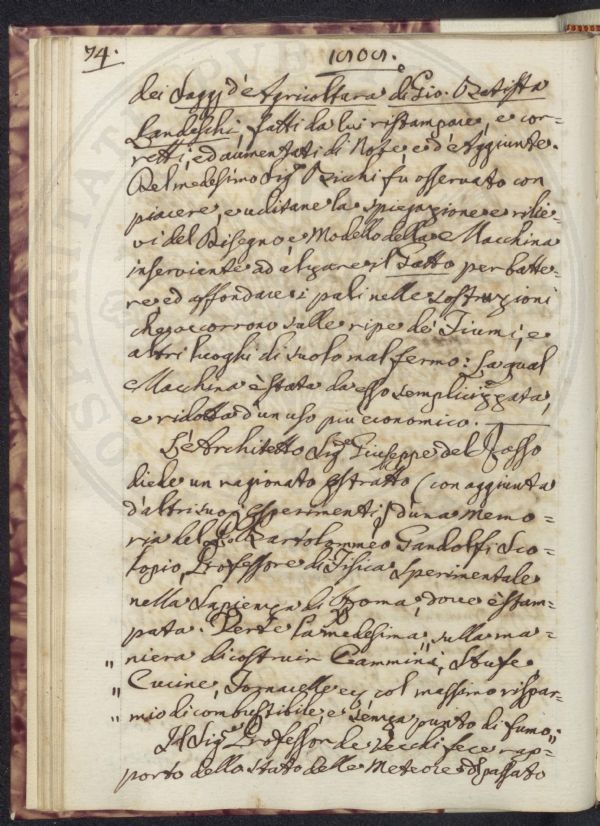 74.
1808.
dei Saggj d'Agricoltura di Gio. Batista
Landeschi, fatti da lui ristampare, e cor=
retti, ed aumentati di Note, e d'Aggiunte.
Del medesimo Sigr. Bicchi fù osservato con
piacere, e uditane la spiegazione e rilie=
vi del Disegno e Modello della Macchina
inserviente ad alzare il Gatto per batte=
re, ed affondare i pali nelle costruzioni
che occorrono sulle ripe dei Fiumi, e
altri luoghi di suolo mal fermo: La qual
Macchina è stata da esso semplicizzata,
e ridotta d'un uso più economico.
L'Architetto Sigr. Giuseppe del Rosso
diede un ragionato estratto (con aggiunta
d'altri suoi esperimenti) d'una Memo=
ria del Bartolommeo Gandolfi Sco=
lopio, Professore di Fisica Sperimentale
nella Sapienza di Roma, dove è stam=
pata. Verte la medesima „ sulla ma=
„ niera di costruir Cammini, Stufe
„ Cucine, Fornacelle ec. col massimo rispar=
„ mio di combustibile, e senza punto di fumo.„
Il Sigr. Professor de Vecchi fece rap=
porto dello stato delle Meteore del passato